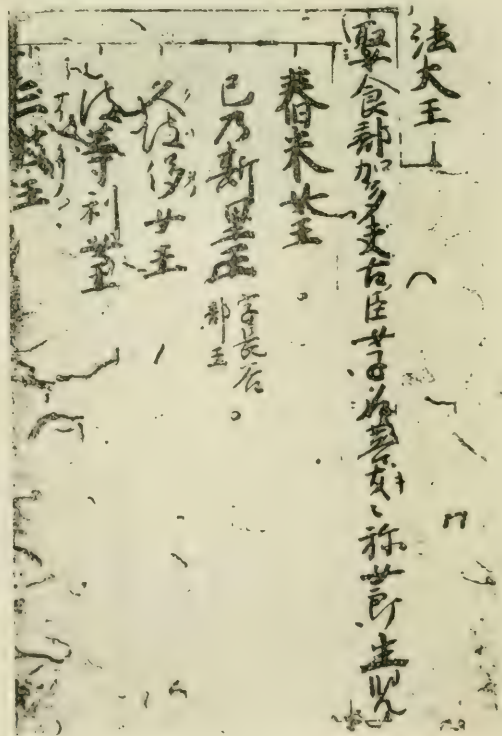 法大王
娶食部加多夫古臣女子名菩支〻祢女郎生児
舂米女王
己乃斯里王 字長谷部王
久波侈女王
波等利女王
三枝王